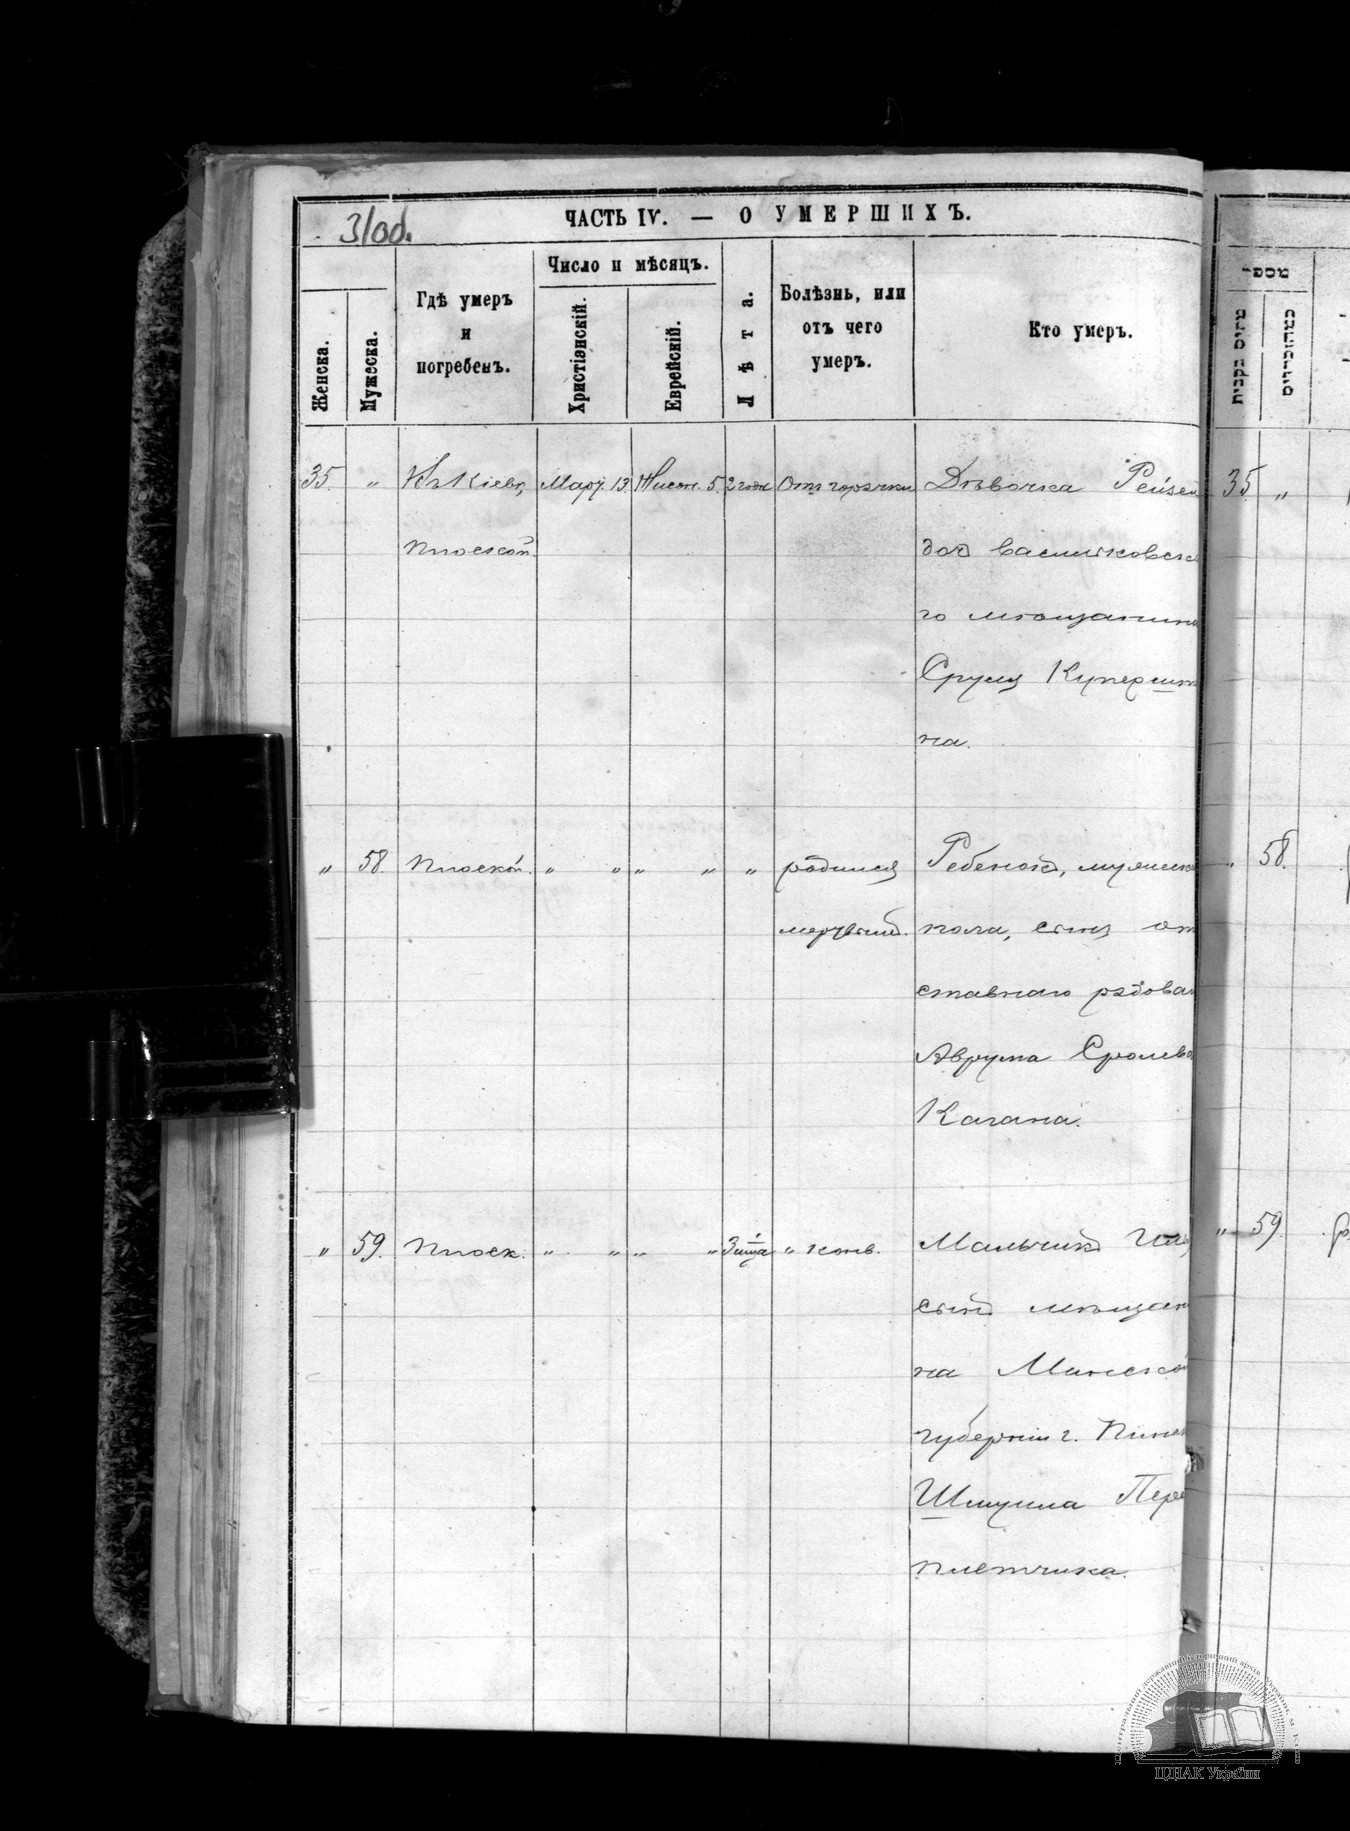 31об.
ЧАСТЬ IV. — О УМЕРШИХЪ.
Женска.
Мужеска.
Гдѣ умеръ
и
погребенъ.
Число и мѣсяцъ.
Христіанскій.
Еврейскій.
Лѣта.
Болѣзнь, или
отъ чего
умеръ.
Кто умеръ.
מספר
35. „ Въ Кіевѣ, Март. 13. Нисон. 5. 2 года Отъ горячки Дѣвочка Рейзе
Плоской. доч васильковска
го мѣщанина
Сруля Купершт
на.
„ 58. Плоской. „ „ „ „ „ родился Ребенокъ, мужеска
мертвый. пола, сынъ от
ставнаго рядова
Аврума Сролева
Кагана.
„ 59. Плоск. „ „ „ „ „ конв. Мальчикъ
сынъ мѣщан
на Минской
губерніи г. Пинс
Шмуила Пере
плетчика.
35. „
„ 58.
„ 59.
ЦДІАК України